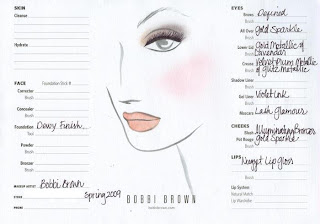 SKIN
Cleanse
Hydrate
FACE
Foundation Stick #
Corrector
Brush
Concealer
Brush
Foundation Dewy Finish
Brush
Powder
Brush
Bronzer
Brush
MAKEUP ARTIST Bobbi Brown
STORE Spring 2009
PHONE
BOBBI BROWN
bobbibrown.com
EYES
Brows Defined
Brush
All Over Gold Sparkle
Brush
Lower Lid Gold Metallic & Lavender
Brush
Crease Velvet Plum Metallic
Brush & Glitz Metallic
Shadow Liner
Brush
Gel Liner Violet Ink
Brush
Mascara Lash Glamour
CHEEKS Illuminating Bronzer
Blush Pot Gold Sparkle
Brush
LIPS Nugget Lip Gloss
Brush
Lip System
Natural Match
Lip Wardrobe